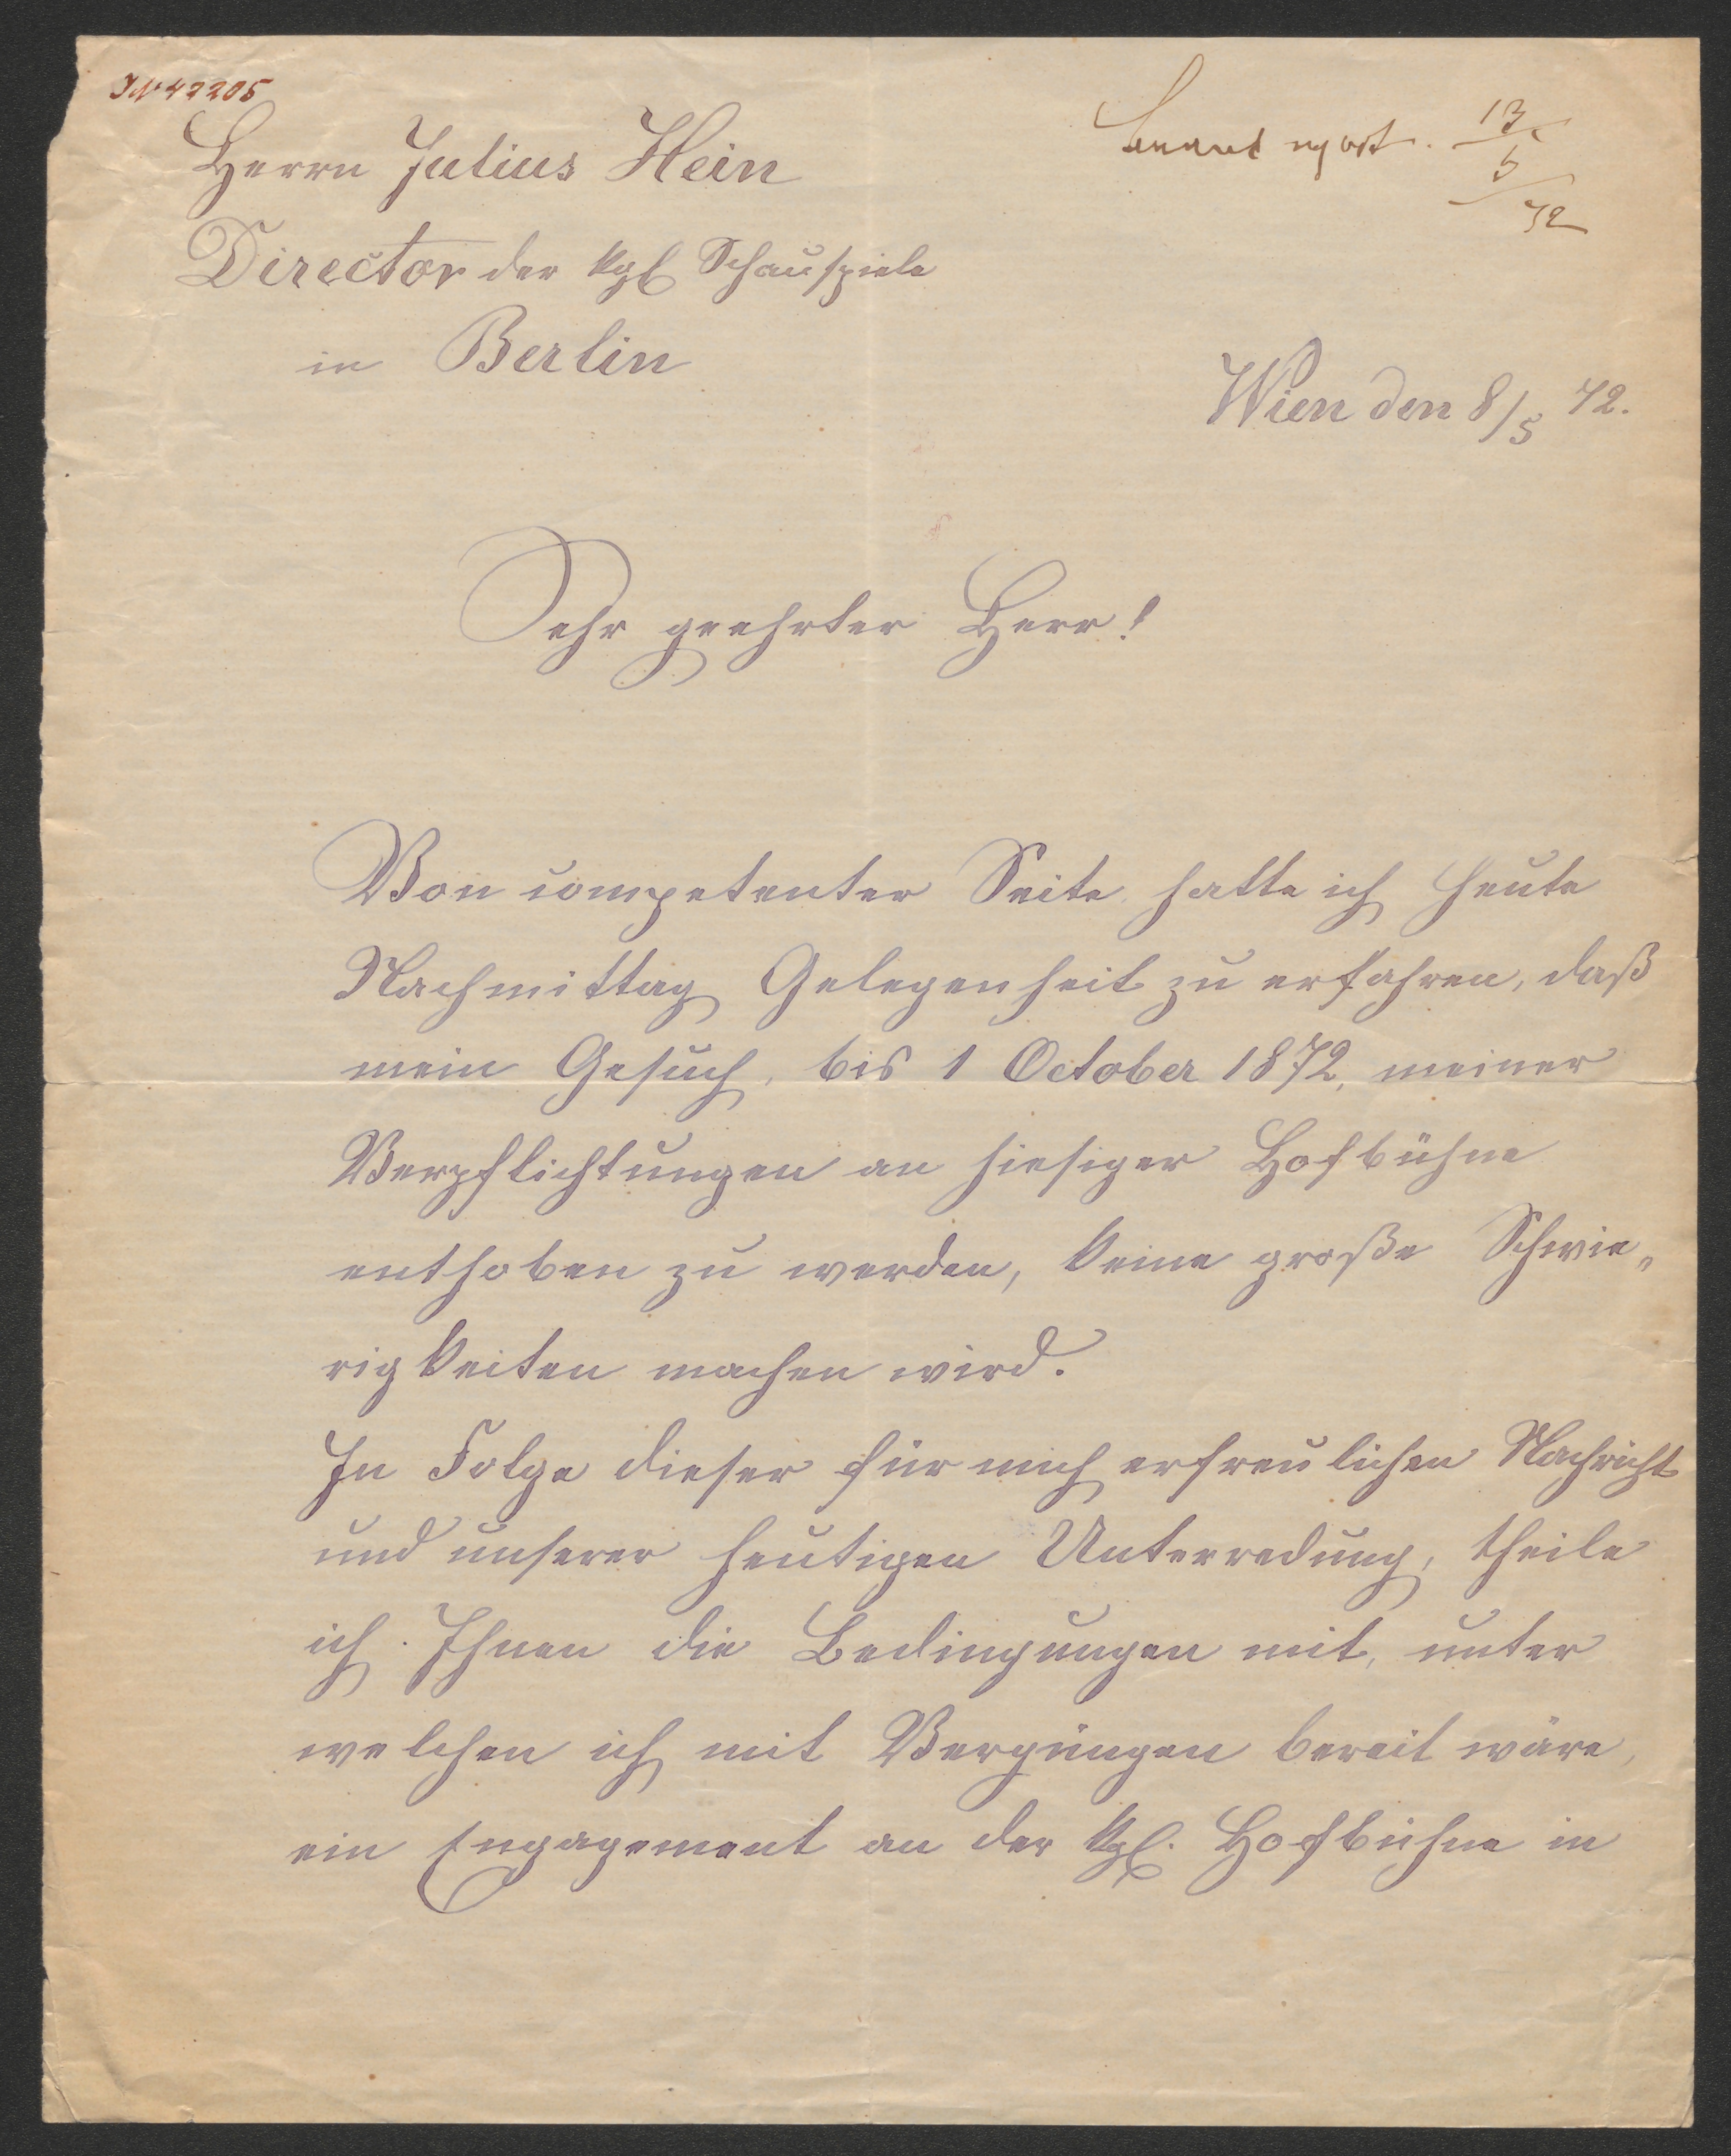 IN 42205
Herrn Julius Hein
Director der kgl Schauspiele
in Berlin
13/5/72
Wien den 8/5 72.
Sehr geehrter Herr!
Von competenter Seite hatte ich heute
Nachmittag Gelegenheit zu erfahren, daß
mein Gesuch, bis 1 October 1872, meiner
Verpflichtungen an hiesiger Hofbühne
enthoben zu werden, keine große Schwie„
rigkeiten machen wird.
In Folge dieser für mich erfreulichen Nachricht
und unserer heutigen Unterredung, theile
ich Ihnen die Bedingungen mit, unter
welchen ich mit Vergnügen bereit wäre,
ein Engagement an der kgl. Hofbühne in